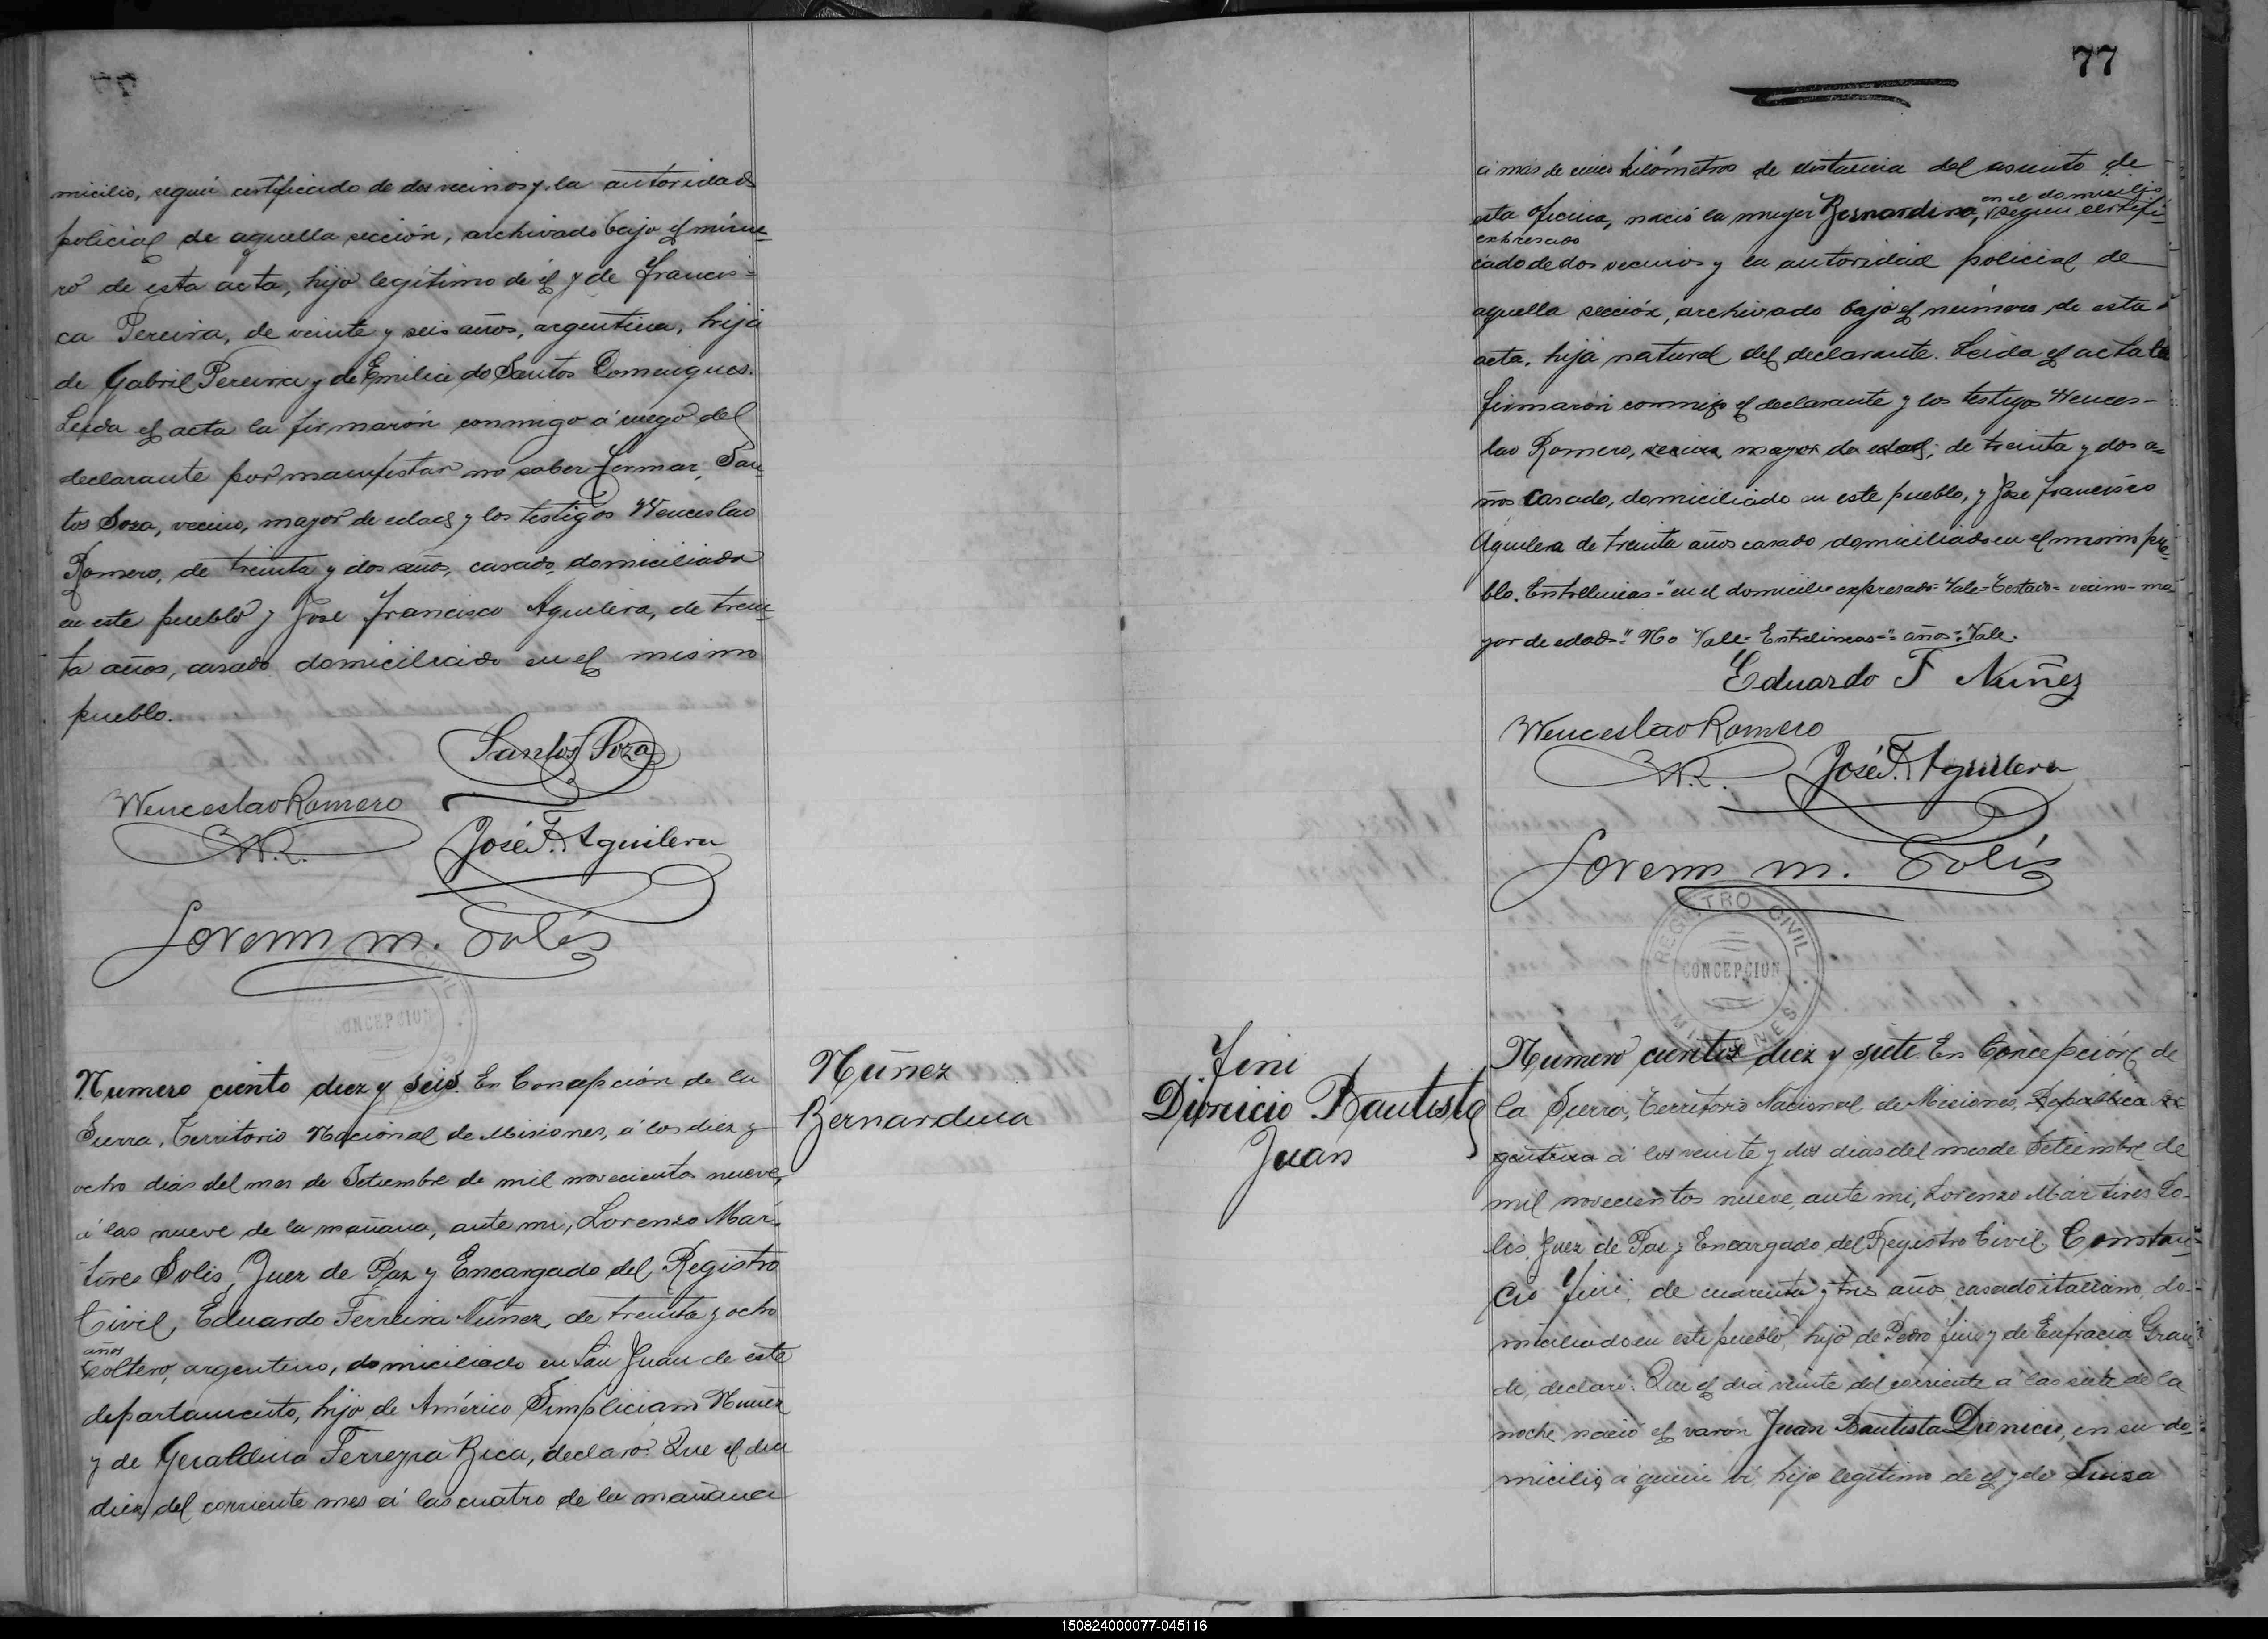 micilio, según certificado de dos vecinos y la autoridad
policial de aquella sección, archivado bajo el núme-
ro de esta acta, hijo legítimo de él y de Francis-
ca Pereira, de veinte y seis años, argentina, hija
de Gabril Pereira y de Emilia do Santos Domingues.
Leida el acta la firmarón conmigo á ruego del
declarante por manifestar no saber firmar, San-
tos Soza, vecino, mayor de edad y los testigos Wenceslao
Romero, de treinta y dos años, casado, domiciliado
en este pueblo y Jose Francisco Aguilera, de trein-
ta años, casado domiciliado en el mismo
pueblo.
Santos Soza
Wenceslao Romero
W.R.
José F. Aguilera
Lorenzo M. Solís
REGISTRO CIVIL
CONCEPCION
Numero ciento diez y seis. En Concepción de la
Sierra, Territorio Nacional de Misiones, á los diez y
ocho dias del mes de Setiembre de mil novecientos nueve,
á las nueve de la mañana, ante mi, Lorenzo Már-
tires Solis, Juez de Paz y Encargado del Registro
Civil, Eduardo Ferreira Nuñez, de treinta y ocho
años
soltero, argentino, domiciliado en San Juan de este
departamento, hijo de Américo Simpliciano Nuñez
y de Geraldina Ferreyra Rica, declaró: Que el dia
diez del corriente mes á las cuatro de la mañana
Núñez
Bernardina
77
á más de cinco kilómetros de distancia del asiento de
en el domicilio
esta oficina, nació la mujer Bernardina, según certifi-
expresado
cado de dos vecinos y la autoridad policial de
aquella sección, archivado bajo el número de esta
acta, hija natural del declarante. Leida el acta la
firmaron conmigo el declarante y los testigos Wences-
lao Romero, vecino, mayor de edad, de treinta y dos a-
ños casado, domiciliado en este pueblo, y Jose Francisco
Aguilera de treinta años casado domiciliado en el mismo pue-
blo. Entrelineas-"en el domicilio expresado-Vale-Testado-vecino-ma-
yor de edad" No Vale-Entrelineas-"años"-Vale.
Eduardo F Nuñez
Wenceslao Romero
W.R.
José F. Aguilera
Lorenzo M. Solís
REGISTRO CIVIL
CONCEPCION
MISIONES
Fini
Dionicio Bautista
Juan
Numero ciento diez y siete. En Concepción de
la Sierra, Territorio Nacional de Misiones, República Ar-
gentina á los veinte y dos dias del mes de Setiembre de
mil novecientos nueve, ante mi, Lorenzo Mártires So-
lis, Juez de Paz y Encargado del Registro Civil, Constan-
cio Fini, de cuarenta y tres años, casado italiano, do-
miciliado en este pueblo, hijo de Pedro Fini y de Eufracia Gran-
de, declaró: Que el dia veinte del corriente á las siete de la
noche nació el varón Juan Bautista Dionicio, en su do-
micilio, á quien ví, hijo legitimo de él y de Luisa
150824000077-045116